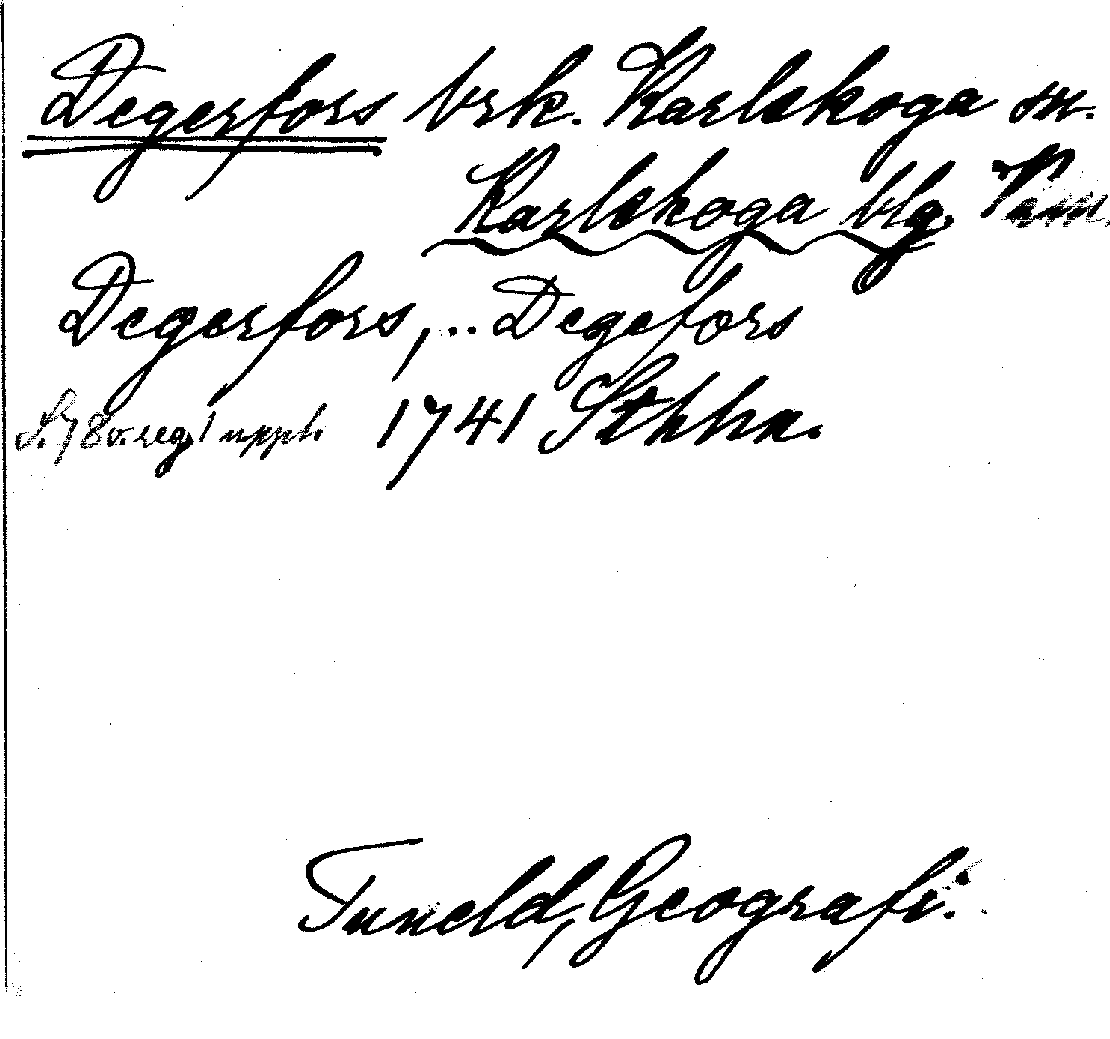 Degerfors brk. Karlskoga sn.
Karlskoga blg. Värm.
Degerfors, .. Degefors
S. 78 o. reg. 1 uppl. 1741 Sthhm.
Tuneld, Geografi.